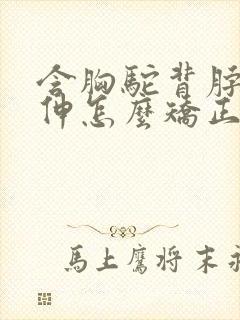 含胸駝背脖
伸怎麼矯正
馬上鷹将末